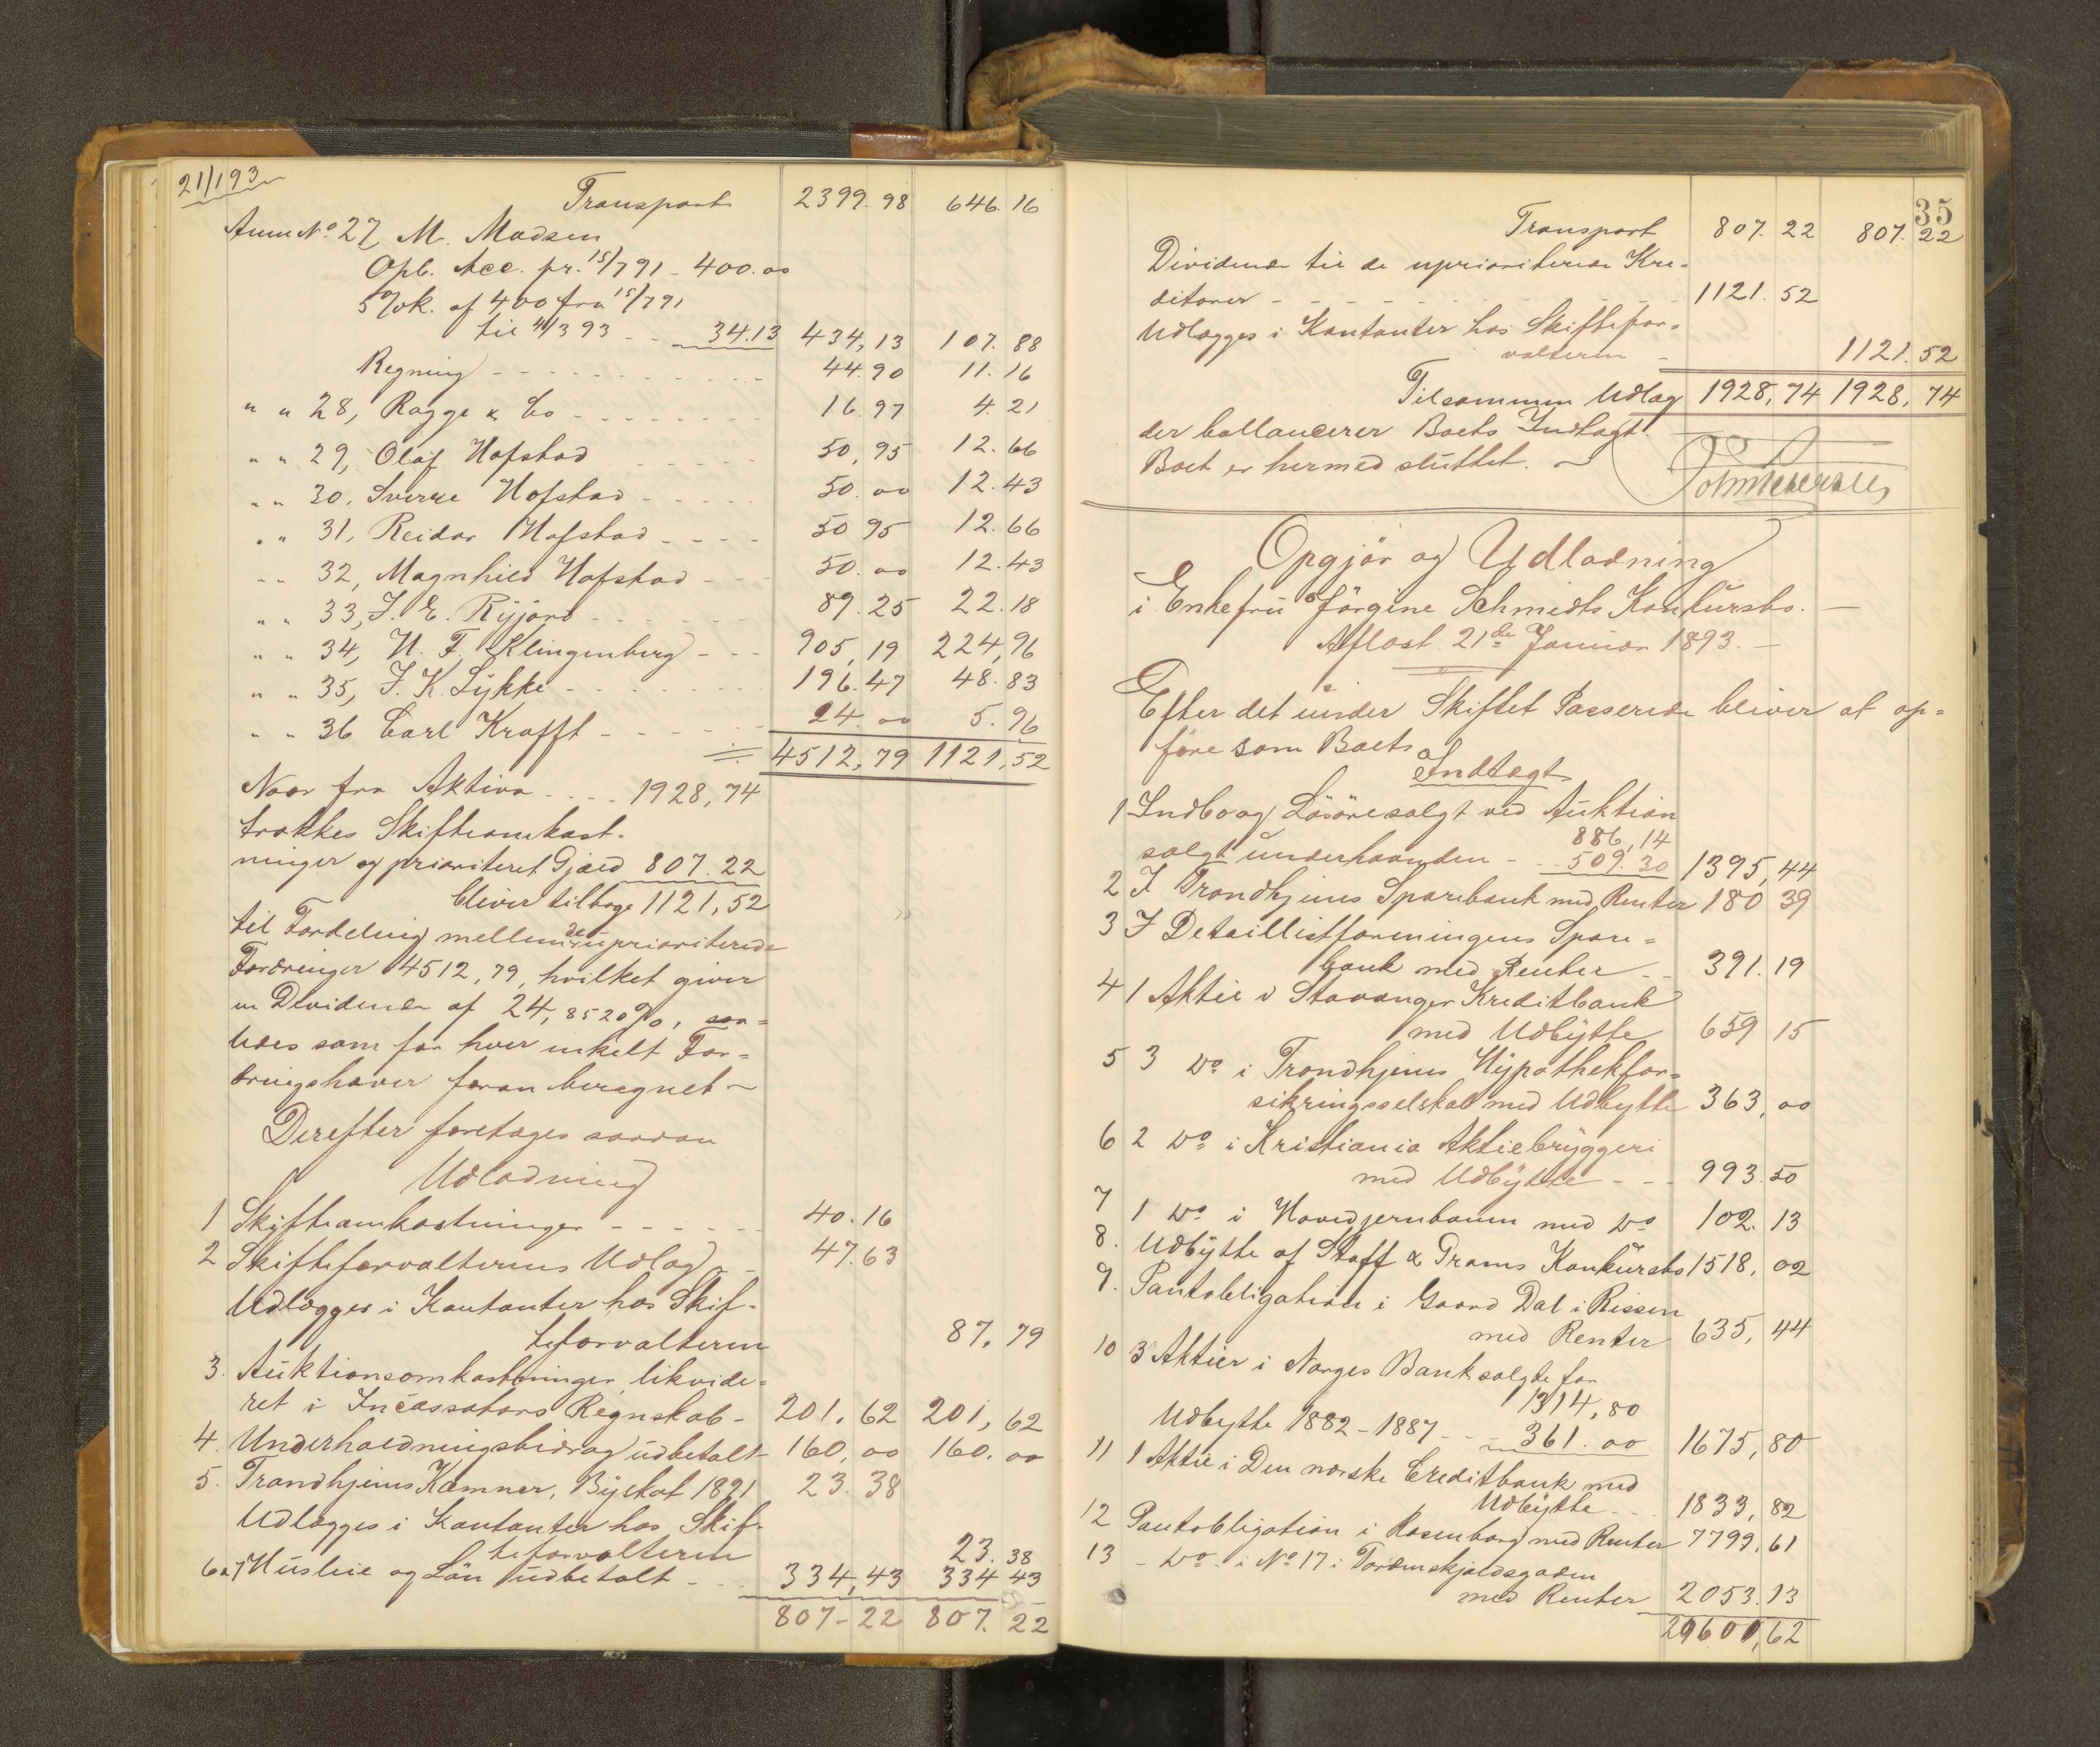 21/193
Transport 2399.98 646.16
Anm No 27 M. Madsen
Opb. Acc. pr. 15/7 91 - 400.00
5% k. af 400 fra 15/7 91
til 4/3 93 - - 34.13 434,13 107.88
Regning - - - - 44.90 11.16
" " 28, Ragge & Co - - - 16.97 4.21
" " 29, Olaf Hofstad - - - 50,95 12.66
" " 30, Sverre Hofstad - - - 50.00 12.43
" " 31, Reidar Hofstad - - - 50 95 12.66
" " 32, Magnhild Hofstad - - 50.00 12.43
" " 33, J. E. Ryjord - - - 89.25 22.18
" " 34, H. F. Klingenberg - - 905,19 224,96
" " 35, J. K. Lykke - - - 196.47 48.83
" " 36 Carl Krafft - - - 24.00 5.96
4512,79 1121,52
Naar fra Aktiva - - - 1928,74
trækkes Skifteomkost-
ninger og prioriteret Gjæld 807.22
bliver tilbage 1121,52
til Fordeling mellem de uprioriterede
Fordringer 4512,79, hvilket giver
en Dividende af 24,8520%, saa-
ledes som for hver enkelt For-
dringshaver foran beregnet -
Derefter foretages saadan
Udlodning
1 Skifteomkostninger - - - 40.16
2 Skifteforvalterens Udlæg - 47.63
Udlægges i Kontanter hos Skif-
teforvalteren 87.79
3. Auktionsomkostninger likvide-
ret i Incassators Regnskab - 201.62 201,62
4. Underholdningsbidrag udbetalt 160,00 160.00
5. Trondhjems Kæmner, Byskat 1891 23.38
Udlægges i Kontanter hos Skif-
teforvalteren 23.38
6 & 7 Husleie og Løn udbetalt - - 334,43 334 43
807-22 807.22
35
Transport 807.22 807.22
Dividende til de uprioriterede Kre-
ditorer - - - 1121.52
Udlægges i Kontanter hos Skiftefor-
valteren - 1121.52
Tilsammen Udlæg 1928,74 1928,74
der ballancerer Boets Indtægt.
Boet er hermed sluttet. -
Opgjør og Udlodning
i Enkefru Jörgine Schmidts Konkursbo. -
Aflast 21de Januar 1893. -
Efter det under Skiftet Passerede bliver at op-
føre som Boets
Indtægt
1 Indbo og Lösöre solgt ved Auktion
886,14
solgt underhaanden - - 509.30 1395,44
2 I Trondhjems Sparebank med Renter 180 39
3 I Detaillistforeningens Spare-
bank med Renter - - 391.19
4 1 Aktie i Stavanger Kreditbank
med Udbytte 659 15
5 3 do i Trondhjems Hypothekfor-
sikringsselskab med Udbytte 363,00
6 2 do i Kristiania Aktiebryggeri
med Udbytte - - 993.50
7 1 do i Hovedjernbanen med do 102.13
8. Udbytte af Staff & Prams Konkursbo 1518,02
9. Pantobligation i Gaard Dal i Rissen
med Renter 635,44
10 3 Aktier i Norges Bank solgte for
1314,80
Udbytte 1882-1887 - - 361.00 1675,80
11 1 Aktie i Den norske Creditbank med
Udbytte - - 1833,82
12 Pantobligation i Rosenborg med Renter 7799,61
13 - do - i No 17 i Tordenskjoldsgaden
med Renter 2053.13
20600,62